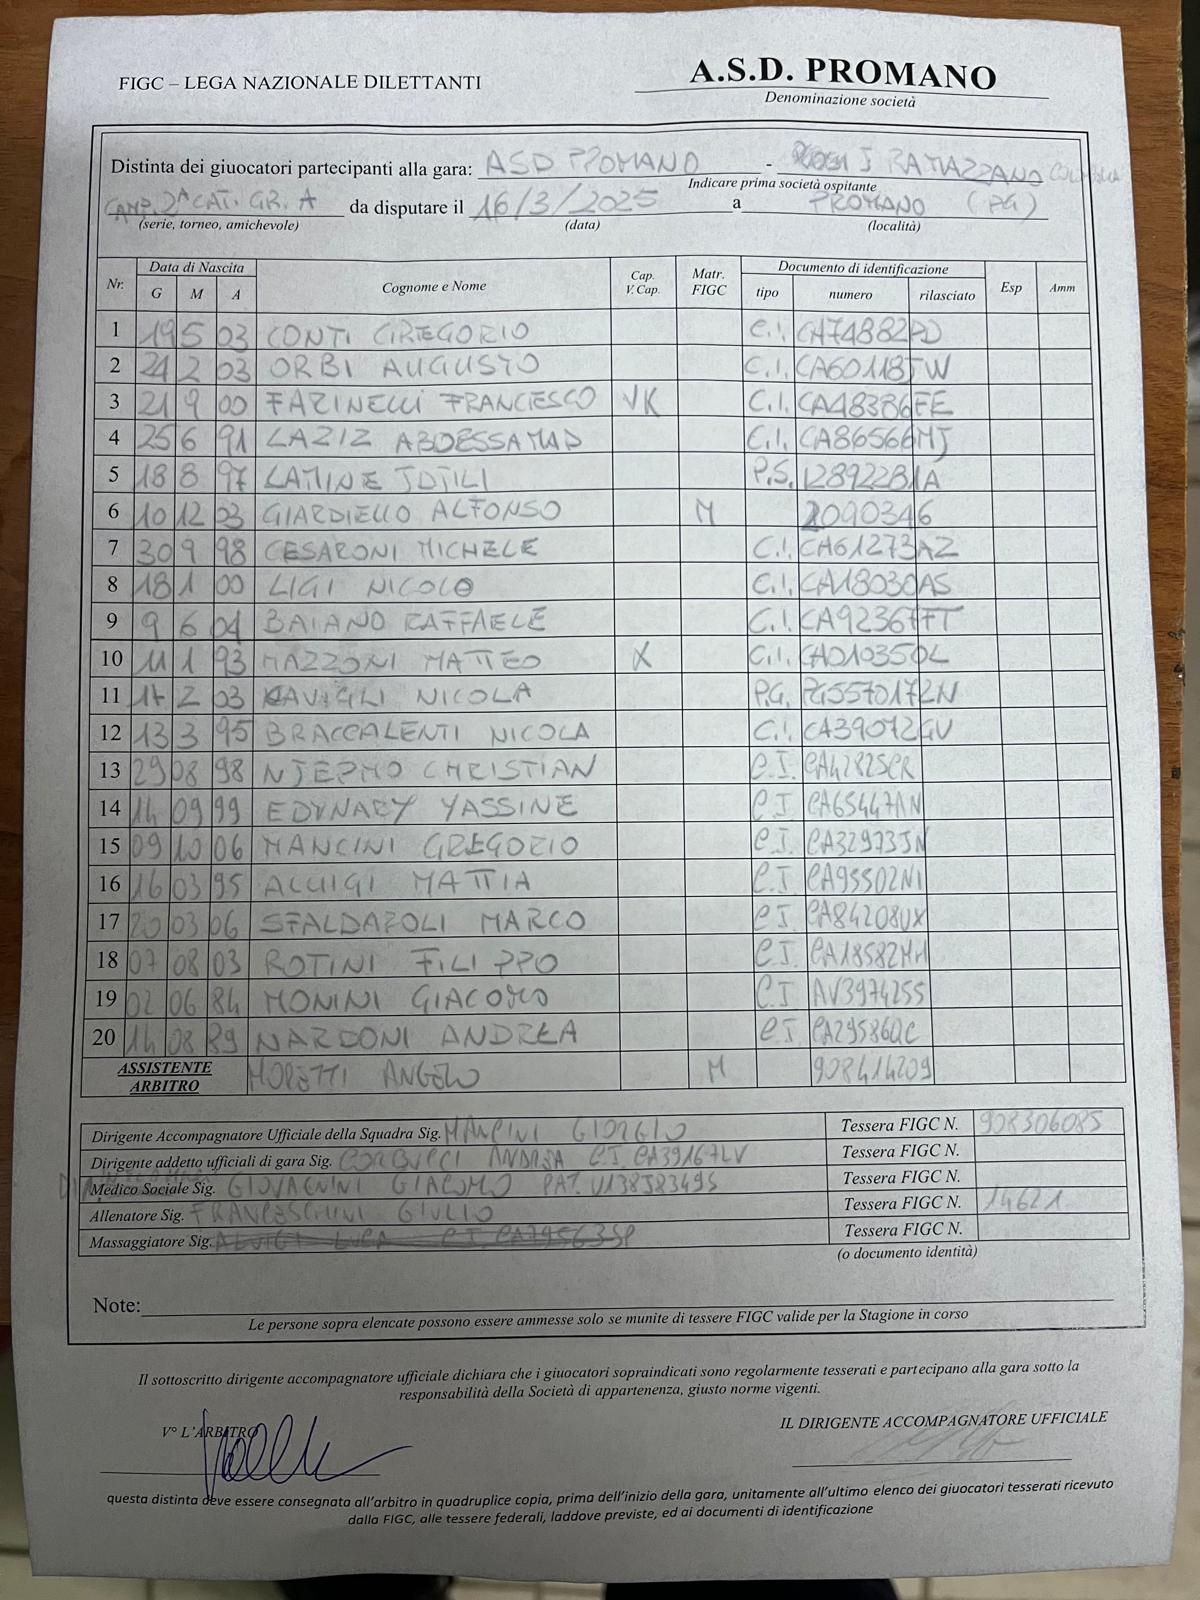 FIGC – LEGA NAZIONALE DILETTANTI
A.S.D. PROMANO
Denominazione società
Distinta dei giuocatori partecipanti alla gara: ASD PROMANO - RAMAZZANO
Indicare prima società ospitante
CAMP. 2^ CAT. GR. A da disputare il 16/3/2025 a PROMANO (PG)
(serie, torneo, amichevole) (data) (località)
Nr. Data di Nascita G M A Cognome e Nome Cap. V. Cap. Matr. FIGC Documento di identificazione tipo numero rilasciato Esp Amm
1 19 5 03 CONTI GREGORIO C.I. CA74882PD
2 24 2 03 ORBI AUGUSTO C.I. CA60118JW
3 21 9 00 FARINELLI FRANCESCO VK C.I. CA48386FE
4 25 6 91 LAZIZ ABDESSAMAD C.I. CA86566MJ
5 18 8 97 LAMINE JDILI P.S. 1289228IA
6 10 12 03 GIARDIELLO ALFONSO M 2090346
7 30 9 98 CESARONI MICHELE C.I. CA61273AZ
8 18 1 00 LIGI NICOLO C.I. CA18030AS
9 9 6 04 BAIANO RAFFAELE C.I. CA92367FT
10 11 1 93 MAZZONI MATTEO X C.I. CA01035OL
11 17 2 03 RAVIGLI NICOLA P.G. PG5570172N
12 13 3 95 BRACCALENTI NICOLA C.I. CA39072GV
13 29 08 98 NJEPMO CHRISTIAN C.I. CA42825CR
14 14 09 99 EDYNARY YASSINE C.I CA65447AN
15 09 10 06 MANCINI GREGORIO C.I CA32973JN
16 16 03 95 ALUIGI MATTIA C.I CA95502NI
17 20 03 06 SFALDAROLI MARCO C.I CA84208UX
18 07 08 03 ROTINI FILIPPO C.I. CA18582MH
19 02 06 84 MONINI GIACOMO C.I AV3974255
20 14 08 89 NARDONI ANDREA C.I CA29586QC
ASSISTENTE ARBITRO MORETTI ANGELO M 908414209
Dirigente Accompagnatore Ufficiale della Squadra Sig. MANCINI GIORGIO Tessera FIGC N. 908306085
Dirigente addetto ufficiali di gara Sig. CORBUCCI ANDREA C.I CA39167LV Tessera FIGC N.
Medico Sociale Sig. GIOVAGNINI GIACOMO PAT. U138J8349S Tessera FIGC N.
Allenatore Sig. FRANCESCHINI GIULIO Tessera FIGC N. 14621
Massaggiatore Sig. ALUIGI LUCA C.I. CA79563SP Tessera FIGC N.
(o documento identità)
Note:
Le persone sopra elencate possono essere ammesse solo se munite di tessere FIGC valide per la Stagione in corso
Il sottoscritto dirigente accompagnatore ufficiale dichiara che i giuocatori sopraindicati sono regolarmente tesserati e partecipano alla gara sotto la
responsabilità della Società di appartenenza, giusto norme vigenti.
V° L'ARBITRO IL DIRIGENTE ACCOMPAGNATORE UFFICIALE
questa distinta deve essere consegnata all'arbitro in quadruplice copia, prima dell'inizio della gara, unitamente all'ultimo elenco dei giuocatori tesserati ricevuto
dalla FIGC, alle tessere federali, laddove previste, ed ai documenti di identificazione